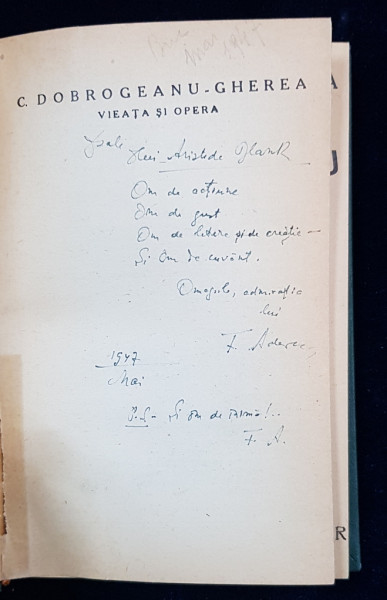 Mai 1947
C. DOBROGEANU-GHEREA
VIEAȚA ȘI OPERA
lui Aristide Blank
Om de acțiune
Om de gust
Om de litere și de creație —
Și Om de cuvânt.
Omagiile, admirația
lui
F. Aderca
1947
Mai
P.S. Și om de inimă!..
F. A.
A
U
R